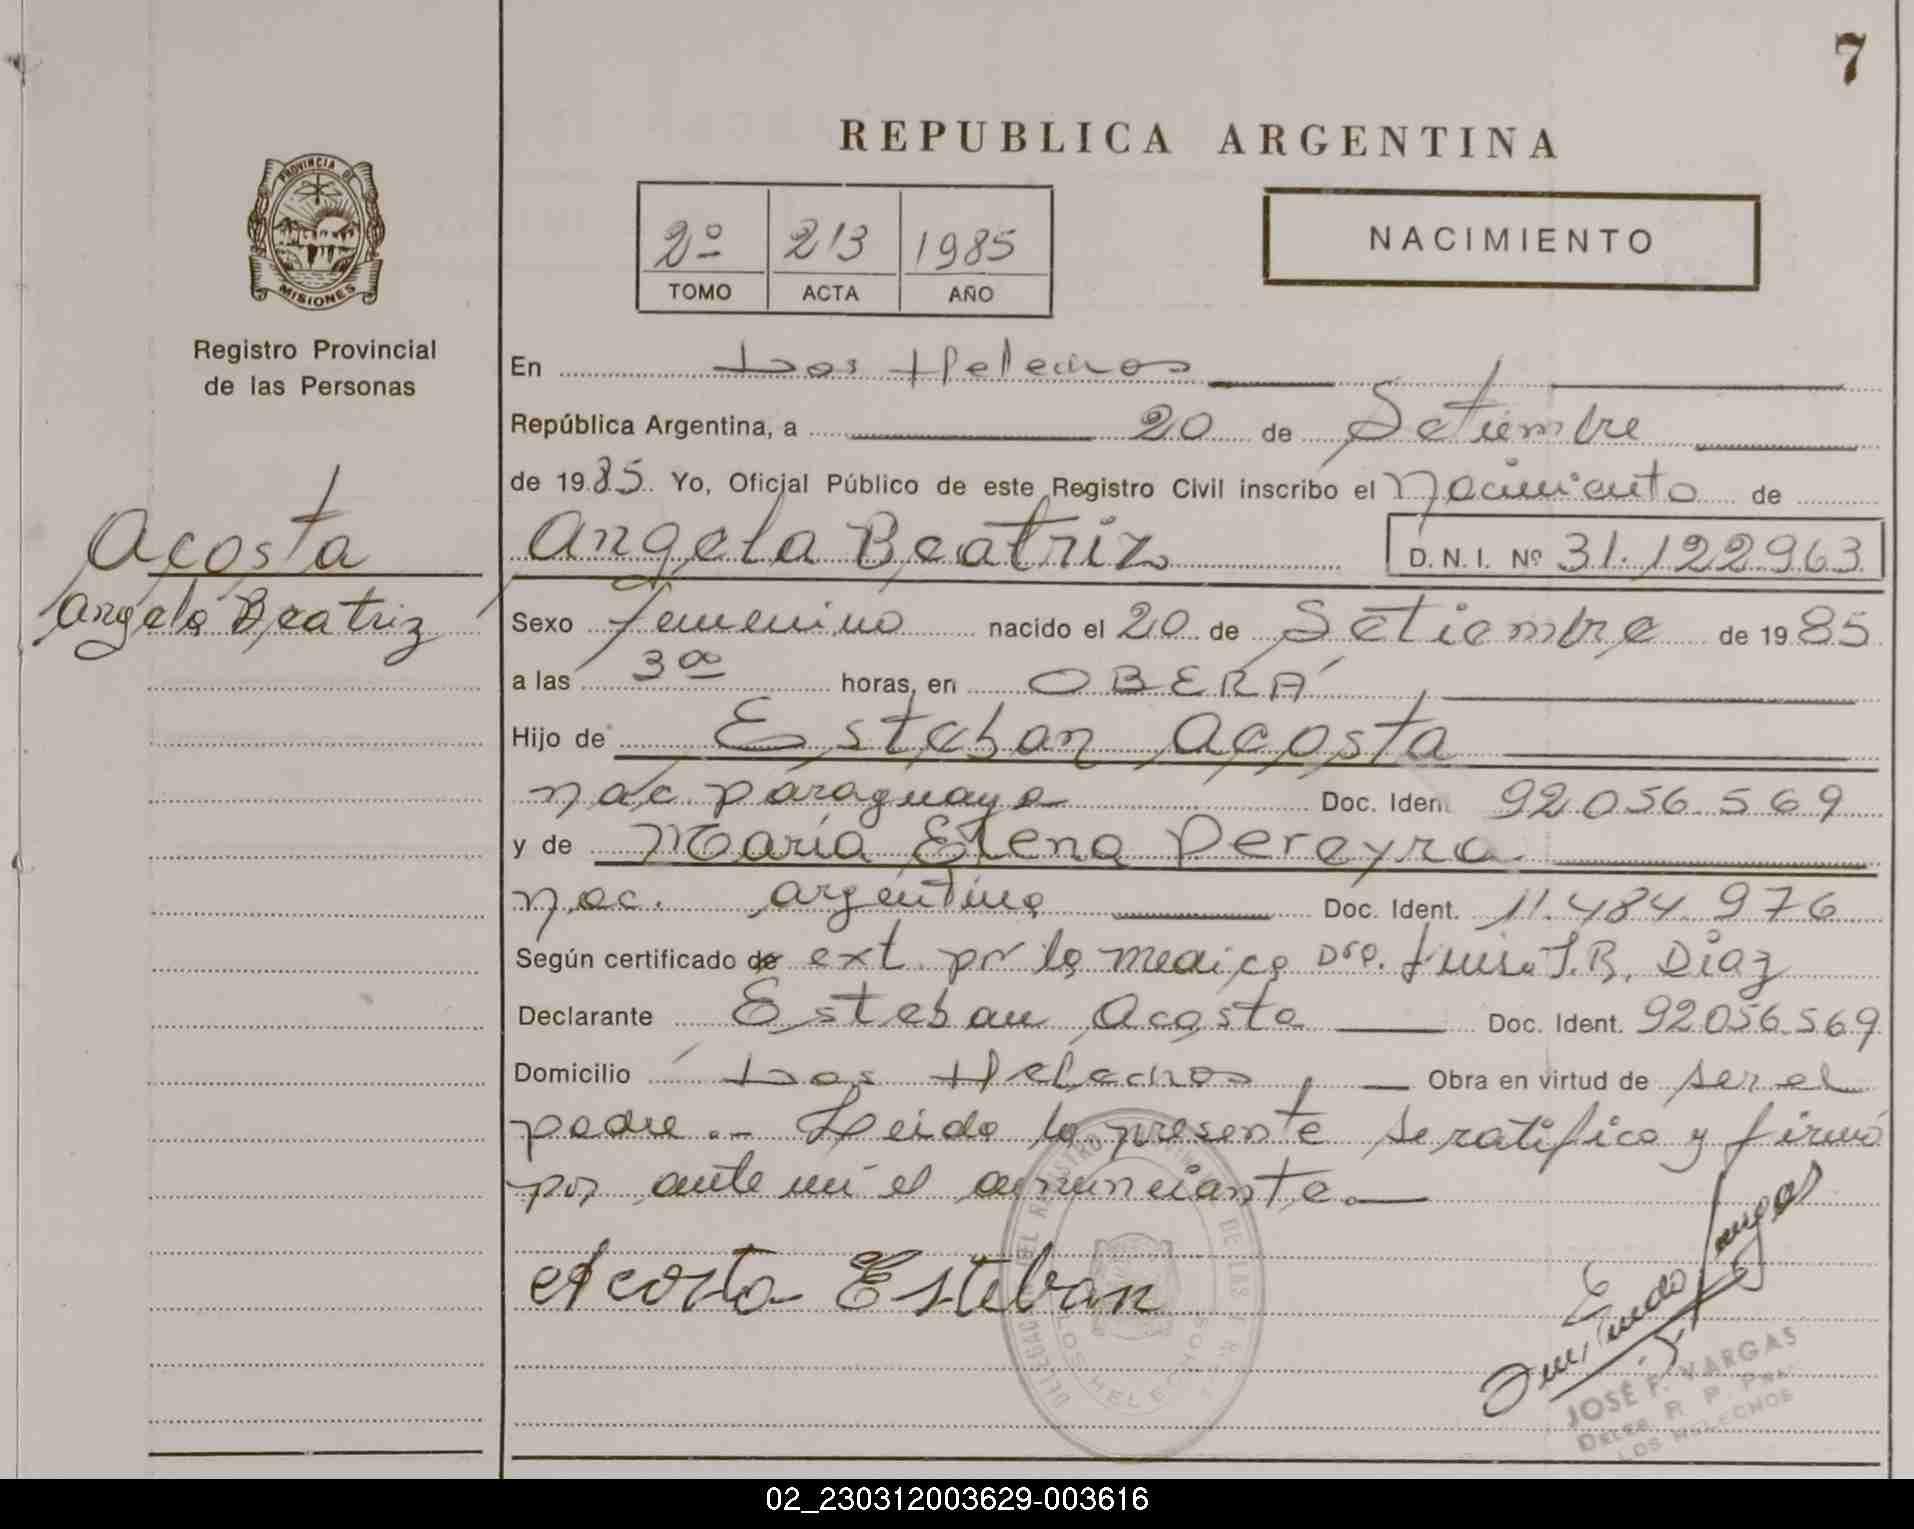 7
REPUBLICA ARGENTINA
PROVINCIA DE
MISIONES
Registro Provincial
de las Personas
2º 213 1985
TOMO ACTA AÑO
NACIMIENTO
En Los Helechos
República Argentina, a 20 de Setiembre
de 1985. Yo, Oficial Público de este Registro Civil inscribo el Nacimiento de
Angela Beatriz D. N. I. Nº 31.122963
Acosta
Angela Beatriz
Sexo femenino nacido el 20 de Setiembre de 1985
a las 3 00 horas, en OBERÁ
Hijo de Esteban Acosta
nac. paraguaya Doc. Iden 92056.569
y de María Elena Pereyra
nac. argentina Doc. Ident. 11.484.976
Según certificado de ext. pr la medica Dra. J.B. Diaz
Declarante Esteban Acosta Doc. Ident. 92056.569
Domicilio Los Helechos, Obra en virtud de ser el
padre.- Leida la presente se ratifico y firmó
por ante mi el denunciante.
Acosta Esteban
JOSÉ F. VARGAS
LOS HELECHOS
LOS HELECHOS
02_230312003629-003616